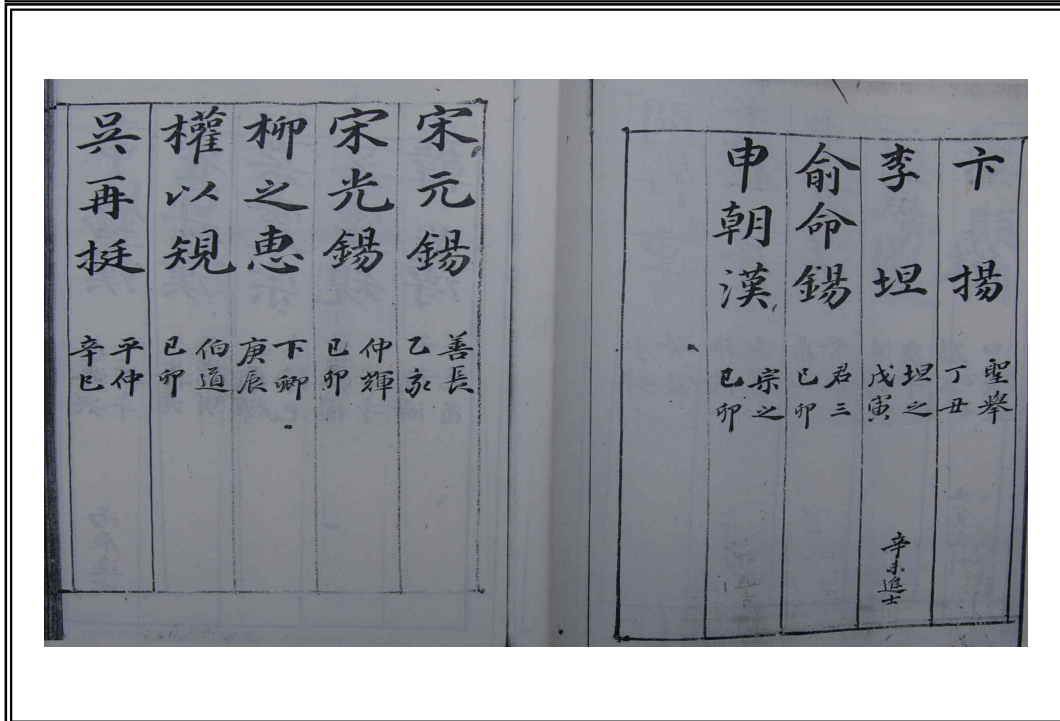 卞揚 聖擧 丁丑
李坦 坦之 戊寅 辛未進士
俞命錫 君三 己卯
申朝漢 宗之 己卯
宋元錫 善長 乙亥
宋光錫 仲輝 己卯
柳之惠 下卿 庚辰
權以規 伯道 己卯
吳再挺 平仲 辛巳